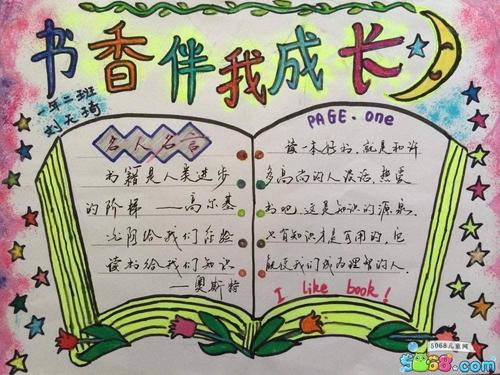 书香伴我成长
一年二班
刘天琦
名人名言
书籍是人类进步
的阶梯 ——高尔基
光阴给我们经验
读书给我们知识
——奥斯特
PAGE.one
读一本好书,就是和许
多高尚的人谈话,热爱
书吧,这是知识的源泉,
只有知识才是可用的,它
能使我们成为理智的人.
I like book!
5068儿童网
5068.com